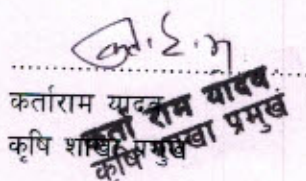 कर्ताराम यादव
कृषि शाखा प्रमुख
कर्ता राम यादव
कृषि शाखा प्रमुख